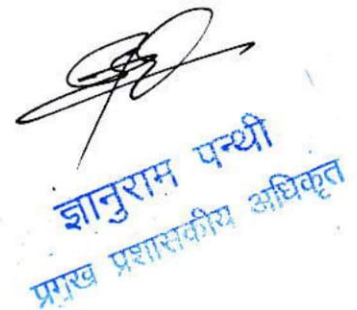 ज्ञानुराम पन्थी
प्रमुख प्रशासकीय अधिकृत